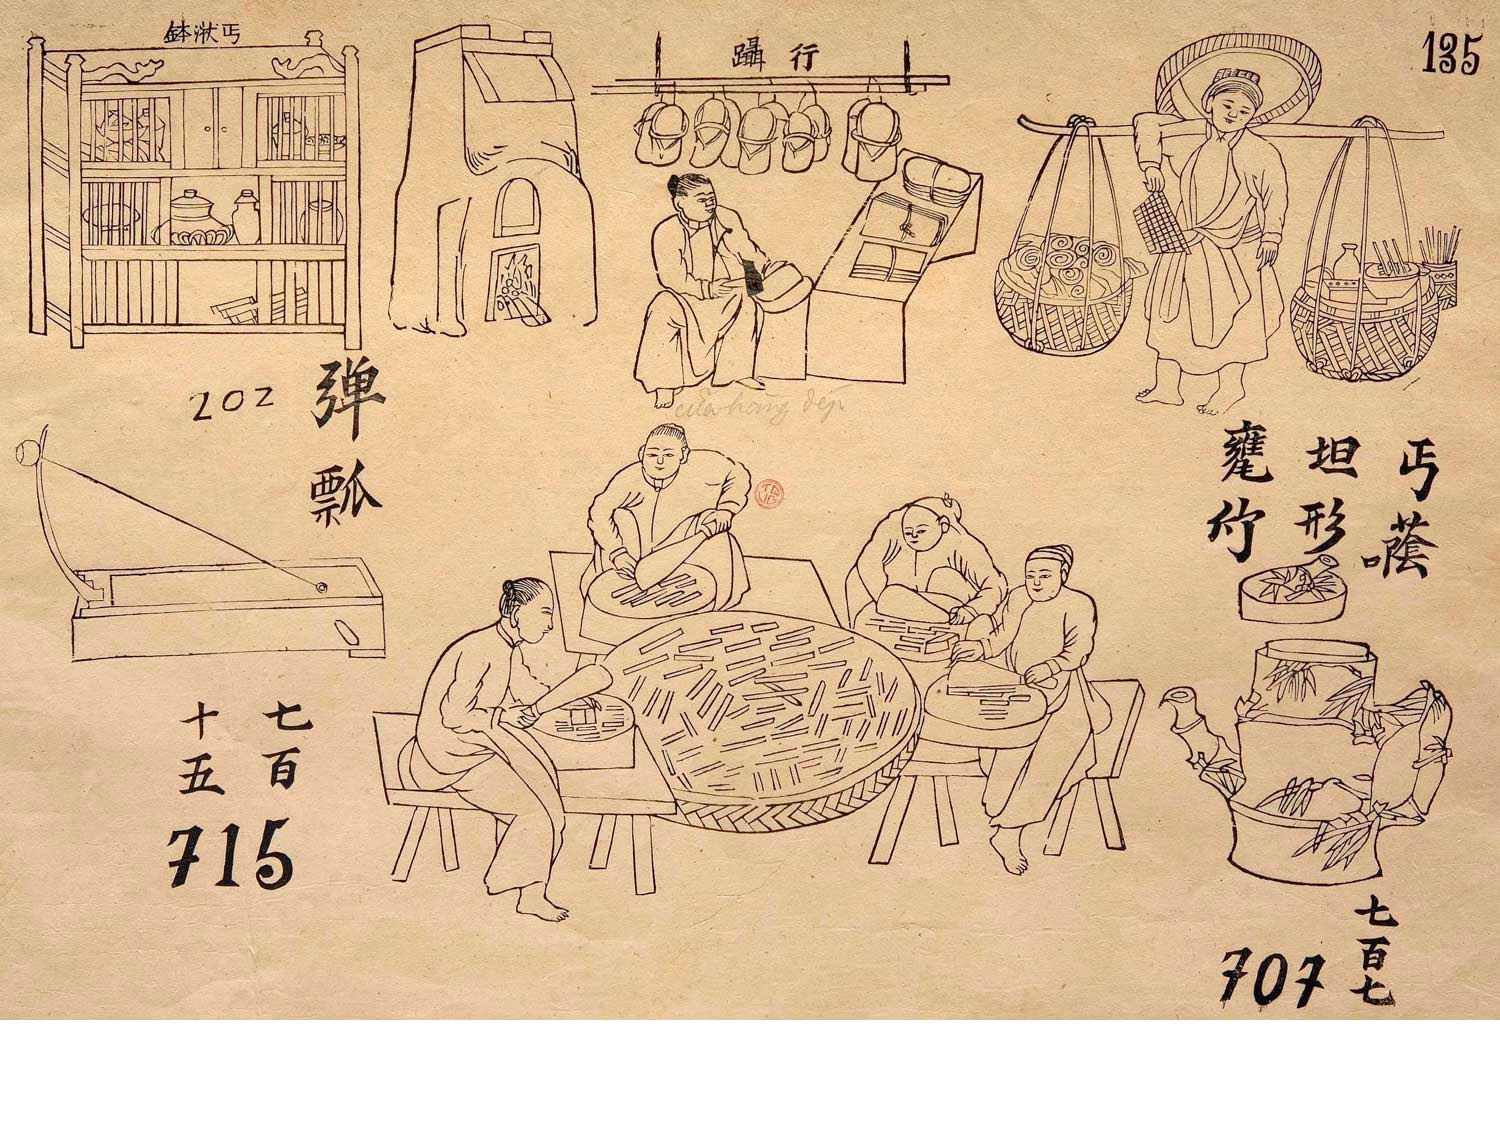 丐 鉢
行躡
135
cửa hàng dép
202
弹瓢
七百
十五
715
丐
坦形
甕竹
七百七
707